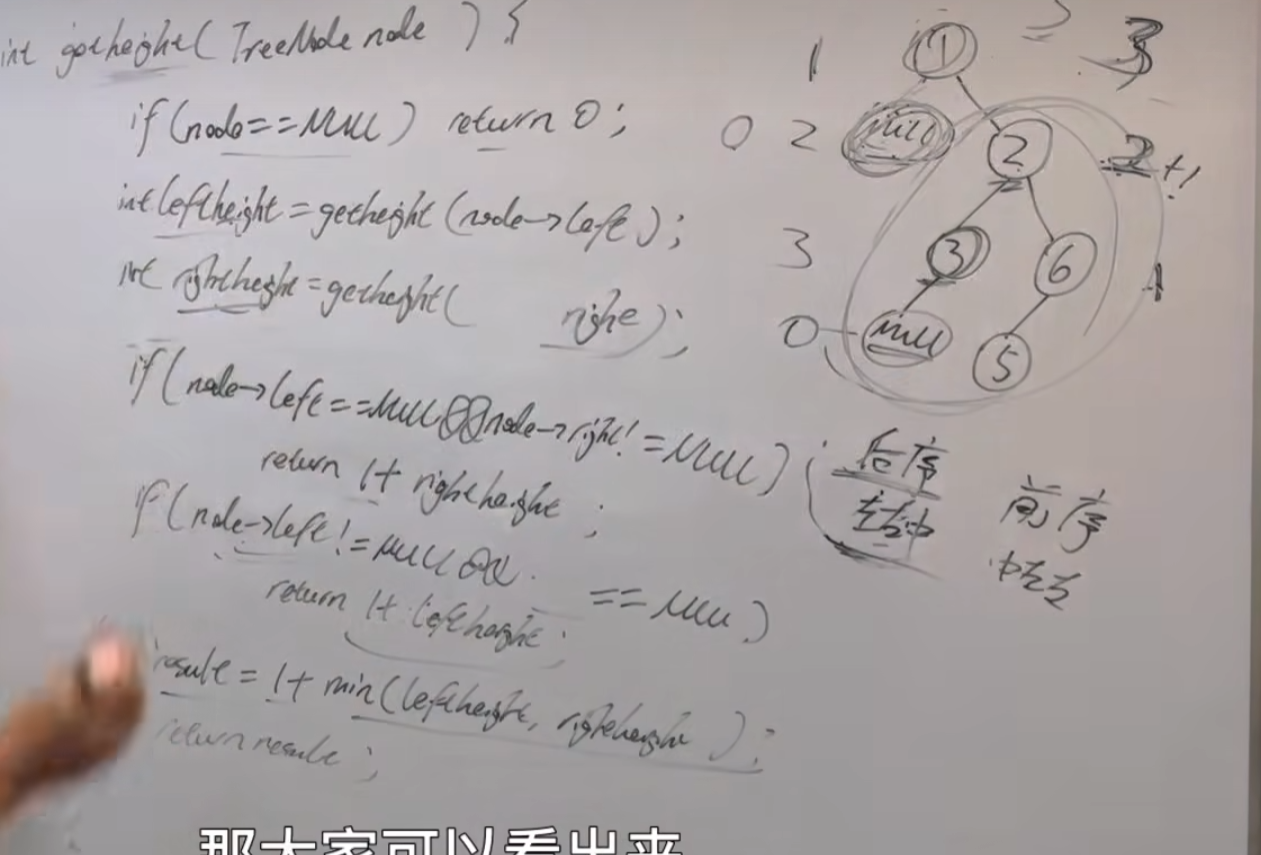 int getheight(TreeNode node) {
if(node==NULL) return 0;
int leftheight=getheight(node->left);
int rightheight=getheight( right);
if(node->left==NULL&&node->right!=NULL)
return 1+rightheight;
if(node->left!=NULL&& ==NULL)
return 1+leftheight;
result=1+min(leftheight,rightheight);
return result;
1 ① = 3
0 2 null 2 2+1
3 3 6 1
0 null 5
后序 前序
左右中 中左右
那大家可以看出来